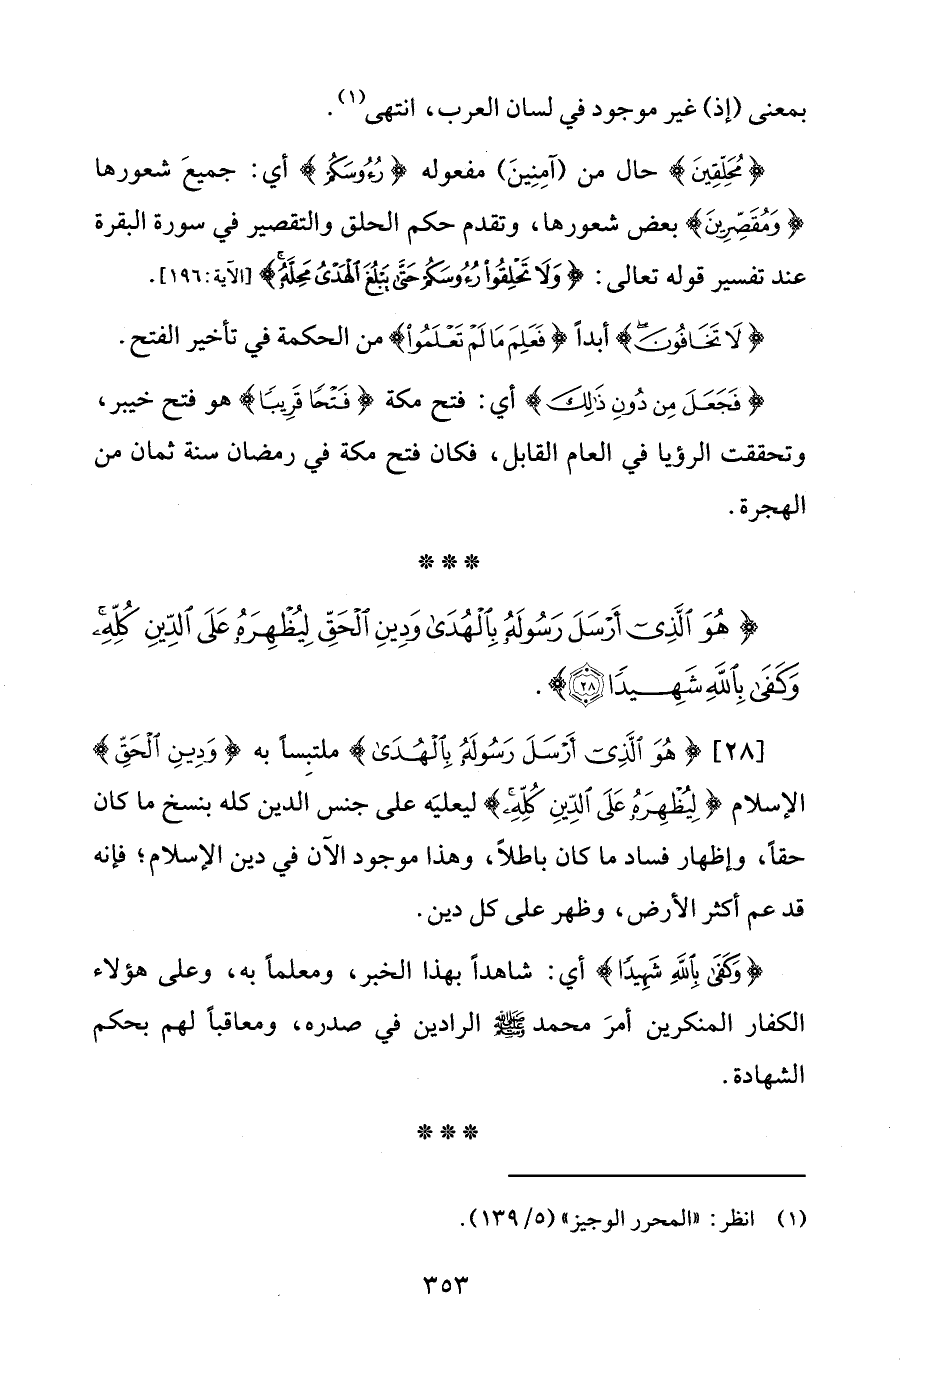 بمعنى (إذ) غير موجود في لسان العرب، انتهى(١).
﴿مُحَلِّقِينَ﴾ حال من (آمِنِينَ) مفعوله ﴿رُءُوسَكُمْ﴾ أي: جميعَ شعورها
﴿وَمُقَصِّرِينَ﴾ بعض شعورها، وتقدم حكم الحلق والتقصير في سورة البقرة
عند تفسير قوله تعالى: ﴿وَلَا تَحْلِقُوا۟ رُءُوسَكُمْ حَتَّىٰ يَبْلُغَ ٱلْهَدْىُ مَحِلَّهُۥ﴾ [الآية: ١٩٦].
﴿لَا تَخَافُونَ﴾ أبداً ﴿فَعَلِمَ مَا لَمْ تَعْلَمُوا۟﴾ من الحكمة في تأخير الفتح.
﴿فَجَعَلَ مِن دُونِ ذَٰلِكَ﴾ أي: فتح مكة ﴿فَتْحًا قَرِيبًا﴾ هو فتح خيبر،
وتحققت الرؤيا في العام القابل، فكان فتح مكة في رمضان سنة ثمان من
الهجرة.
* * *
﴿هُوَ ٱلَّذِىٓ أَرْسَلَ رَسُولَهُۥ بِٱلْهُدَىٰ وَدِينِ ٱلْحَقِّ لِيُظْهِرَهُۥ عَلَى ٱلدِّينِ كُلِّهِۦ ۚ
وَكَفَىٰ بِٱللَّهِ شَهِيدًا ٢٨﴾.
[٢٨] ﴿هُوَ ٱلَّذِىٓ أَرْسَلَ رَسُولَهُۥ بِٱلْهُدَىٰ﴾ ملتبساً به ﴿وَدِينِ ٱلْحَقِّ﴾
الإسلام ﴿لِيُظْهِرَهُۥ عَلَى ٱلدِّينِ كُلِّهِۦ ۚ﴾ ليعليَه على جنس الدين كله بنسخ ما كان
حقاً، وإظهار فساد ما كان باطلاً، وهذا موجود الآن في دين الإسلام؛ فإنه
قد عم أكثر الأرض، وظهر على كل دين.
﴿وَكَفَىٰ بِٱللَّهِ شَهِيدًا﴾ أي: شاهداً بهذا الخبر، ومعلماً به، وعلى هؤلاء
الكفار المنكرين أمرَ محمد ﷺ الرادين في صدره، ومعاقباً لهم بحكم
الشهادة.
* * *
(١) انظر: «المحرر الوجيز» (٥/ ١٣٩).
٣٥٣